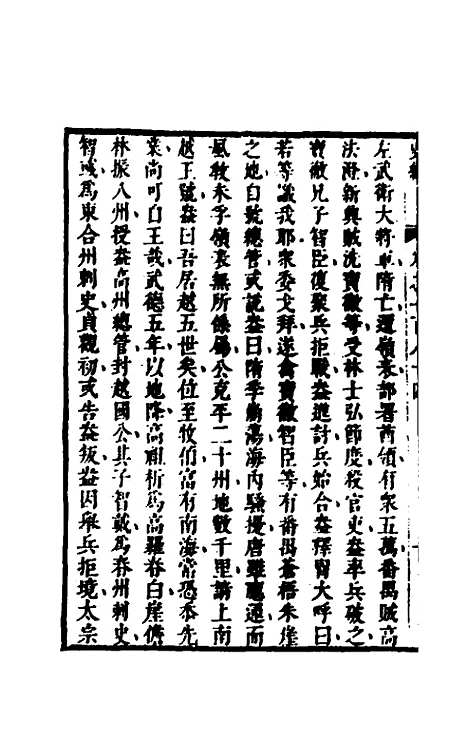 左武衛大將軍隋亡還嶺表部署酋領有衆五萬番禺賊高
法澄新興賊洗寶徹等受林士弘節度殺官吏盎率兵破之
寶徹兄子智臣復聚兵拒戰盎進討兵始合盎釋胄大呼曰
若等識我耶衆委戈拜遂禽寶徹智臣等有番禺蒼梧朱崖
之地自號總管或說盎曰隋季崩蕩海內騷擾唐雖應運而
風敎未孚嶺表無所係屬公克平二十州地數千里請上南
越王號盎曰吾居越五世矣位至牧伯富有南海常恐忝先
業尚可自王哉武德五年以地降高祖析爲高羅春白崖儋
林振八州授盎高州總管封越國公其子智戴爲春州刺史
智彧爲東合州刺史貞觀初或告盎叛盎因舉兵拒境太宗